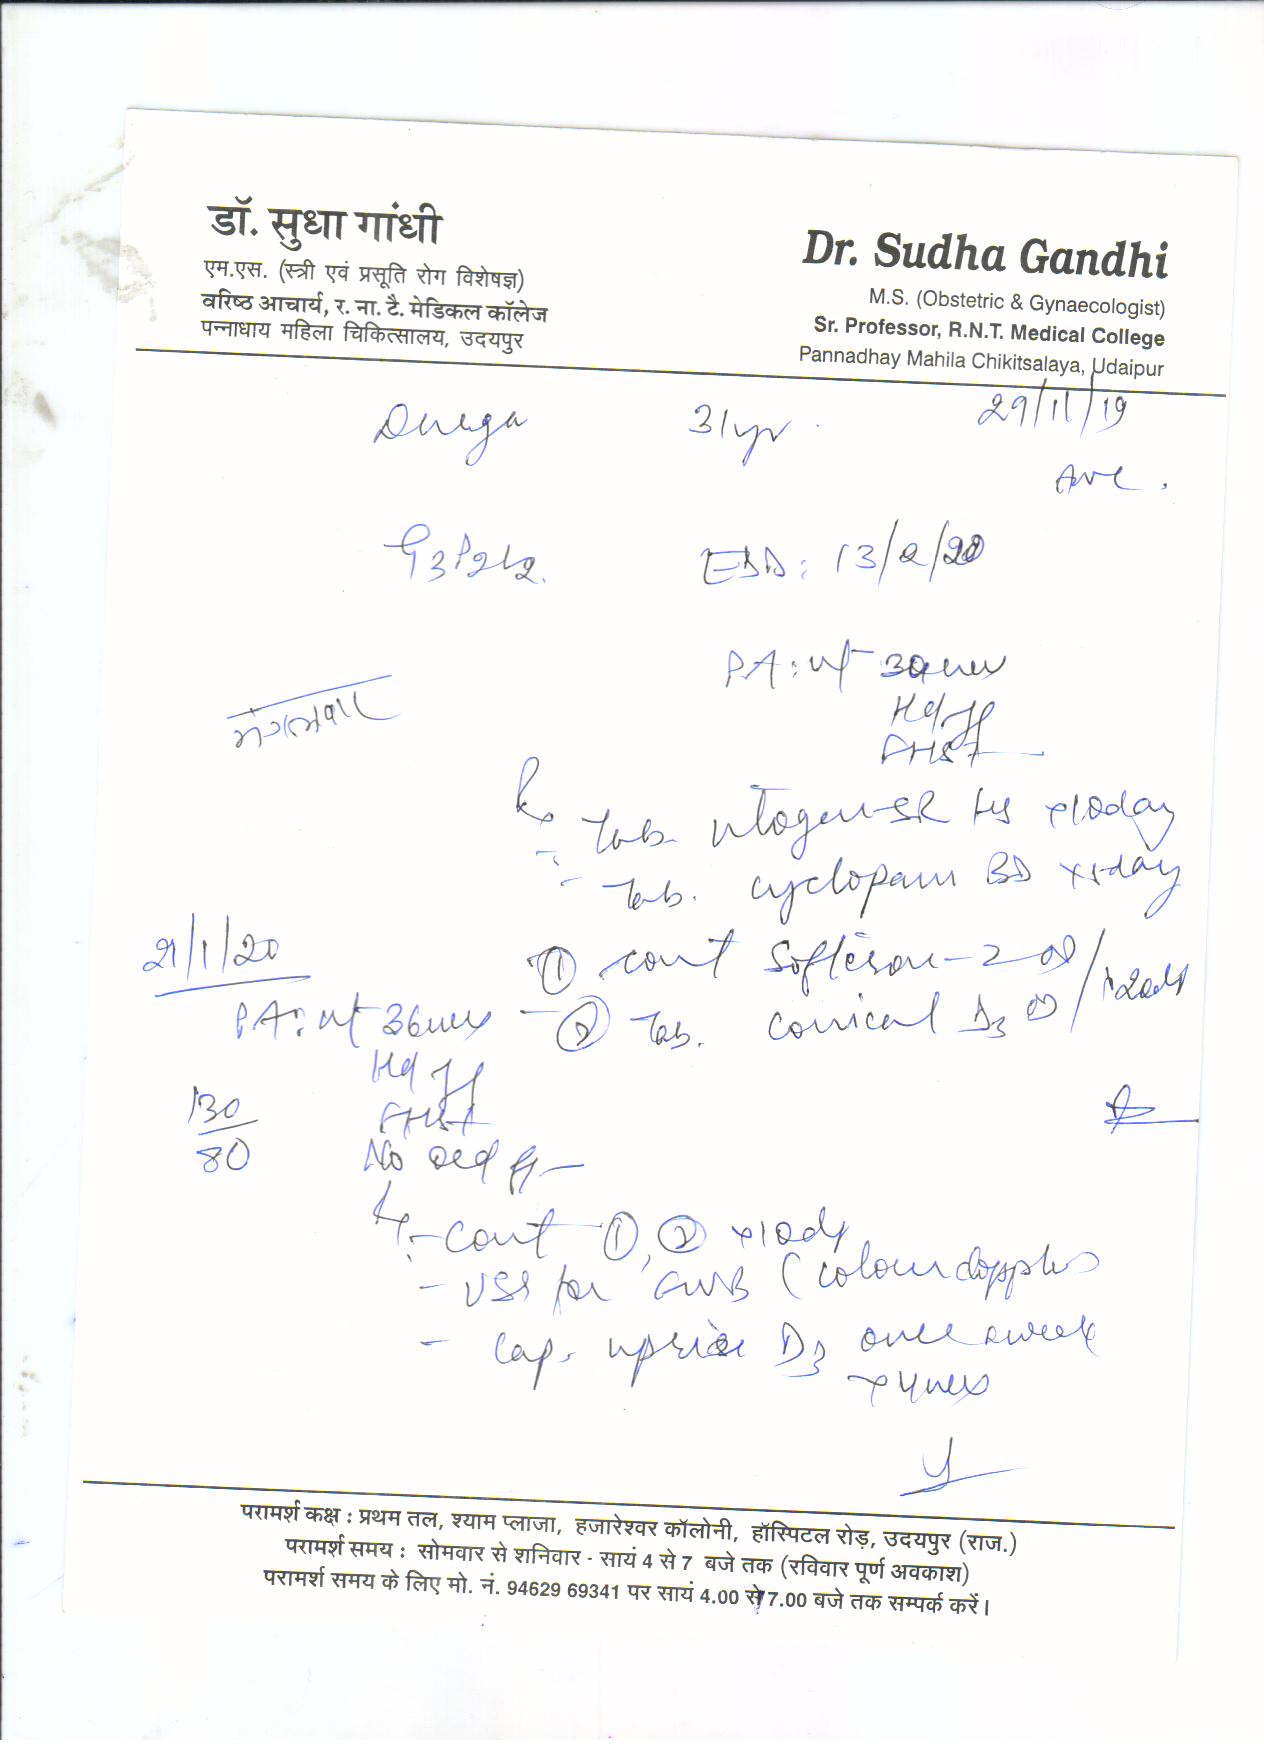 डॉ. सुधा गांधी
एम.एस. (स्त्री एवं प्रसूति रोग विशेषज्ञ)
वरिष्ठ आचार्य, र. ना. टै. मेडिकल कॉलेज
पन्नाधाय महिला चिकित्सालय, उदयपुर
Dr. Sudha Gandhi
M.S. (Obstetric & Gynaecologist)
Sr. Professor, R.N.T. Medical College
Pannadhay Mahila Chikitsalaya, Udaipur
Durga 31yr. 29/11/19
G3P2L2. EDD: 13/2/20
PA: ut
FHS+
Rx
Tab. SR HS x10day
- Tab. cyclopam BD x5day
① cont Softeron-Z OD
② Tab. D3 OD
21/1/20
PA: ut 36
FHS+
130/80
No
Rx
- Cont ①, ② x10
- USG for FWB (colour doppler
- Cap. uprise D3 once a week
x4
परामर्श कक्ष : प्रथम तल, श्याम प्लाजा, हजारेश्वर कॉलोनी, हॉस्पिटल रोड़, उदयपुर (राज.)
परामर्श समय : सोमवार से शनिवार - सायं 4 से 7 बजे तक (रविवार पूर्ण अवकाश)
परामर्श समय के लिए मो. नं. 94629 69341 पर सायं 4.00 से 7.00 बजे तक सम्पर्क करें।